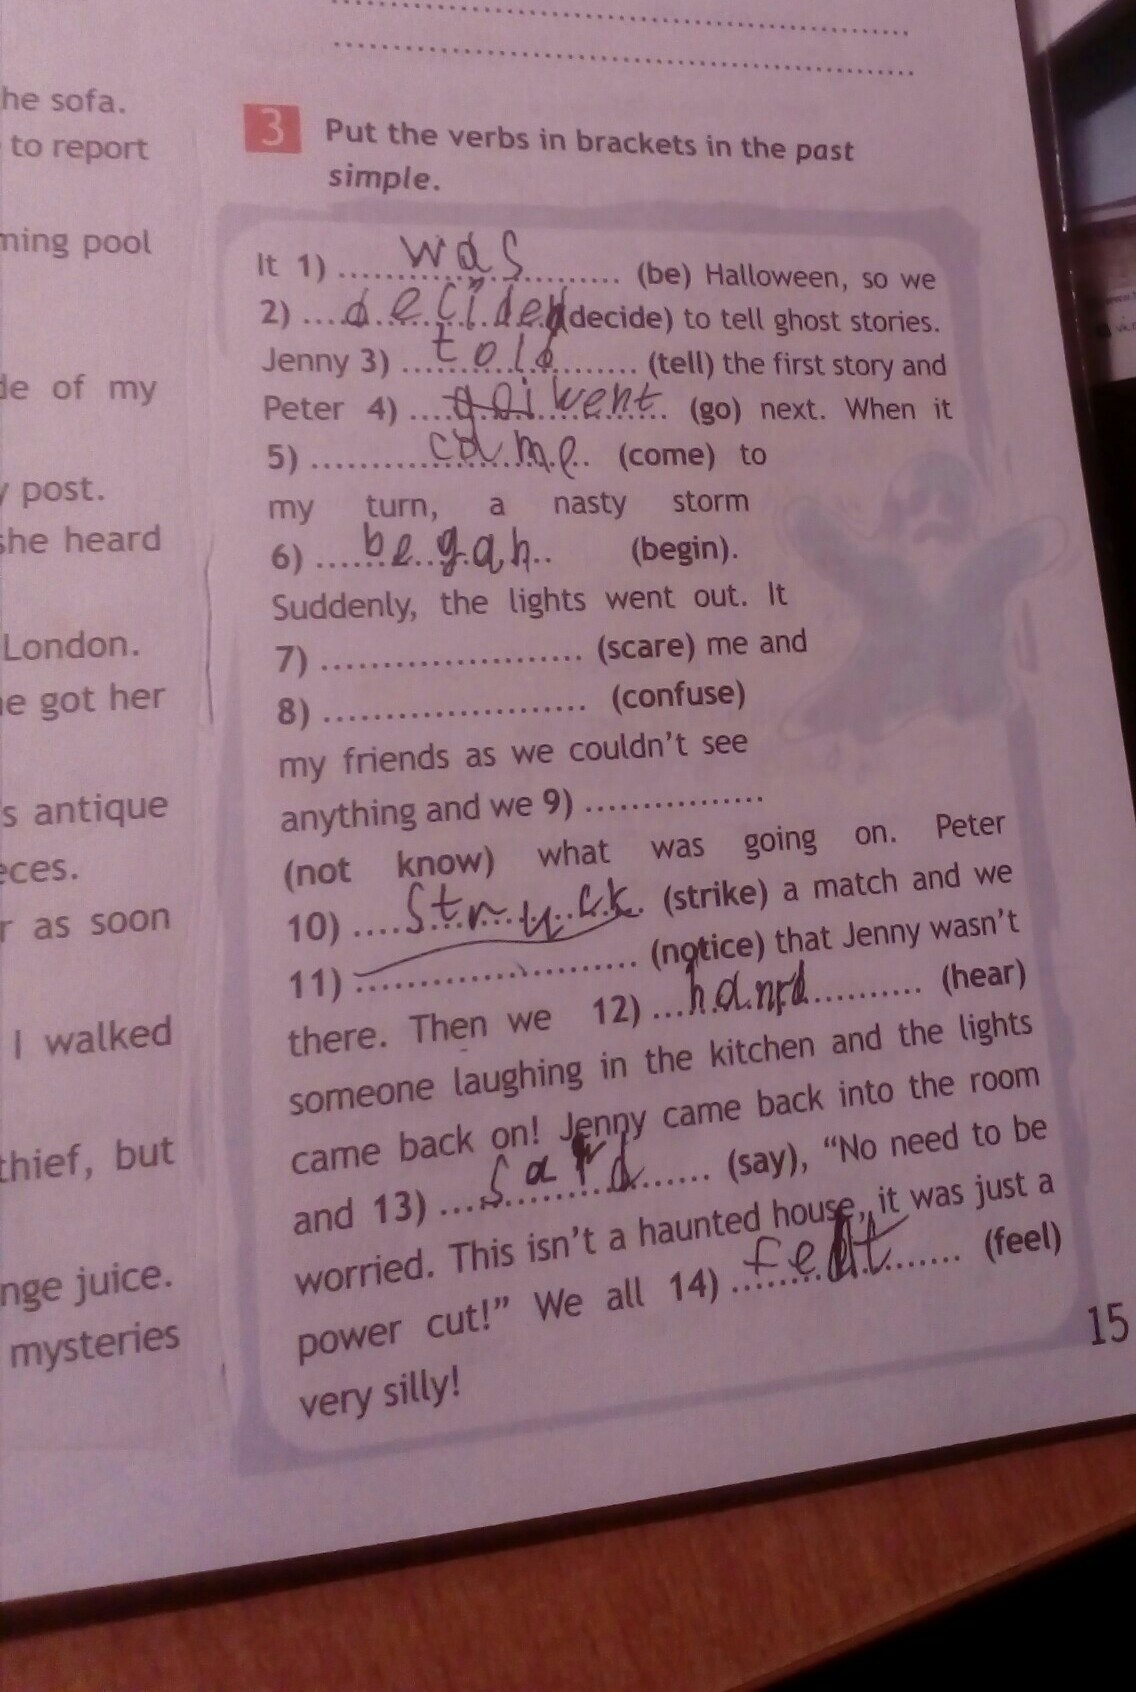 he sofa.
to report
ming pool
de of my
y post.
she heard
London.
he got her
s antique
eces.
r as soon
I walked
thief, but
nge juice.
mysteries
3 Put the verbs in brackets in the past
simple.
It 1) was (be) Halloween, so we
2) decided (decide) to tell ghost stories.
Jenny 3) told (tell) the first story and
Peter 4) went (go) next. When it
5) came (come) to
my turn, a nasty storm
6) began (begin).
Suddenly, the lights went out. It
7) ........................ (scare) me and
8) ........................ (confuse)
my friends as we couldn't see
anything and we 9) ................
(not know) what was going on. Peter
10) struck (strike) a match and we
11) ........................ (notice) that Jenny wasn't
there. Then we 12) (hear)
someone laughing in the kitchen and the lights
came back on! Jenny came back into the room
and 13) said (say), "No need to be
worried. This isn't a haunted house, it was just a
power cut!" We all 14) felt (feel)
very silly!
15